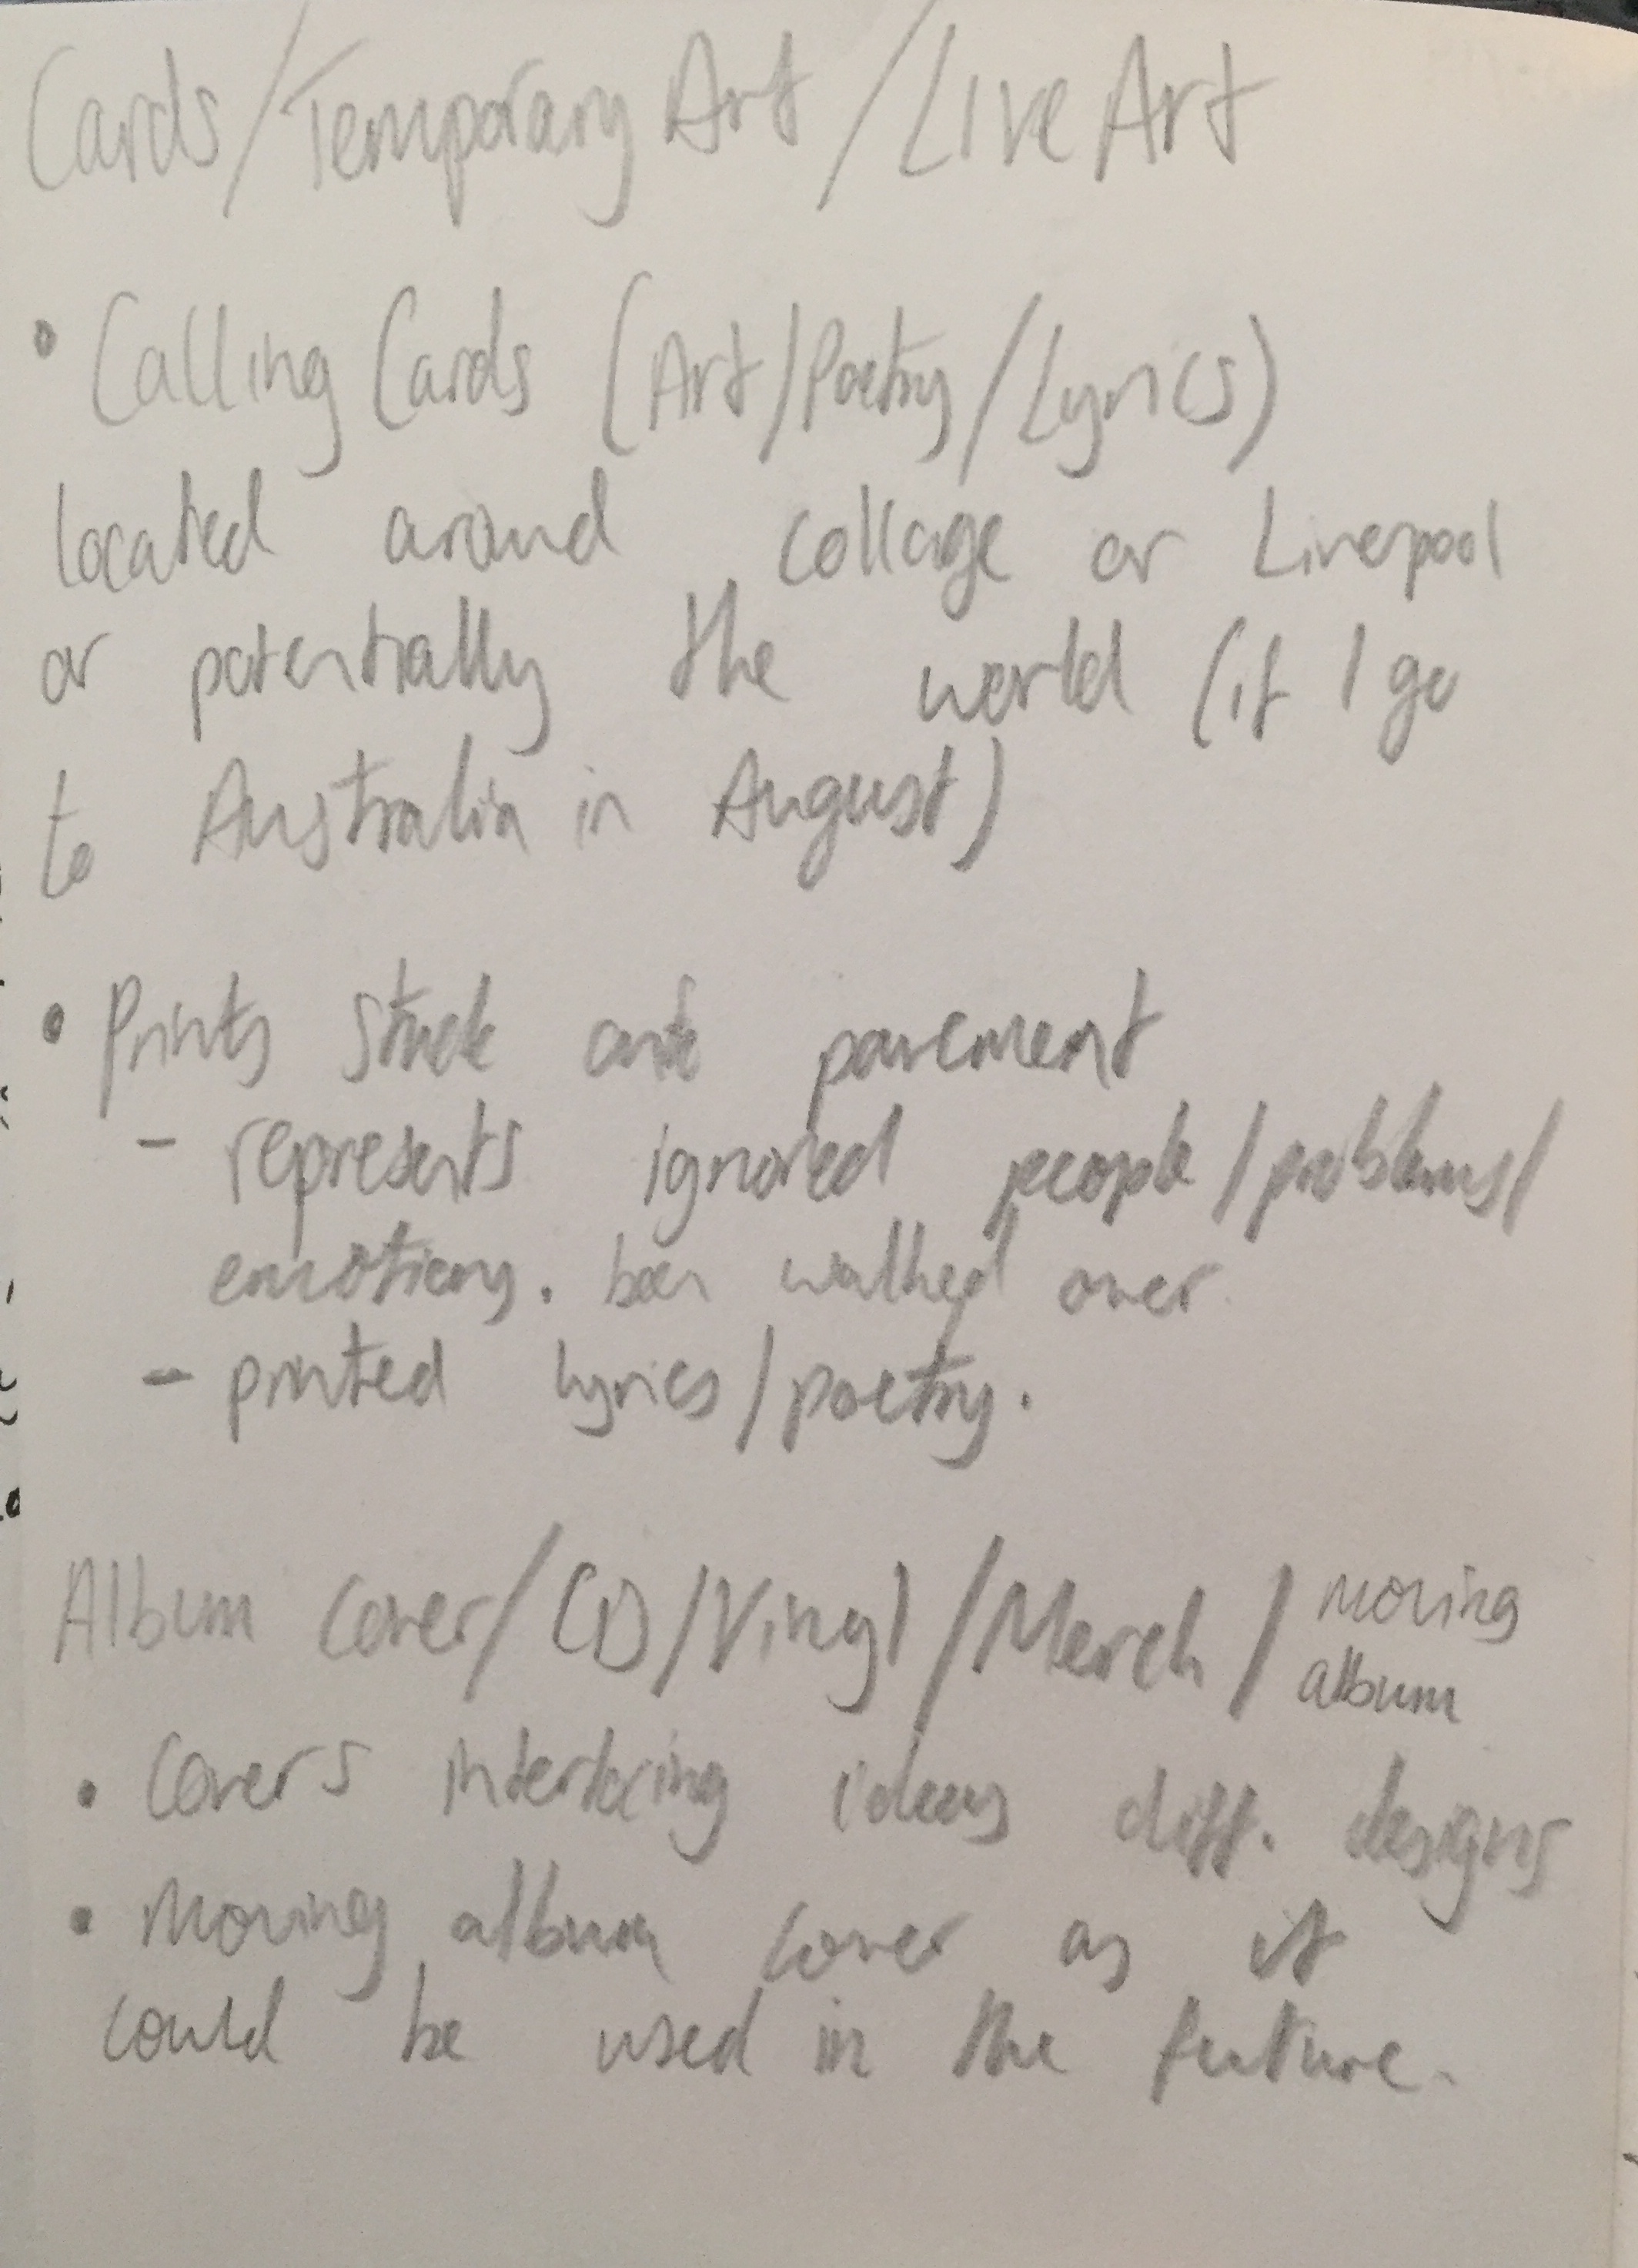 Cards/Temporary Art/Live Art
• Calling Cards (Art/Poetry/Lyrics)
located around collage or Liverpool
or potentially the world (if I go
to Australia in August)
• Prints stuck onto pavement
- represents ignored people/problems/
emotions. been walked over
- printed lyrics/poetry.
Album Cover/CD/Vinyl/Merch/moving
album
• Covers interlacing ideas diff. designs
• Moving album cover as it
could be used in the future.